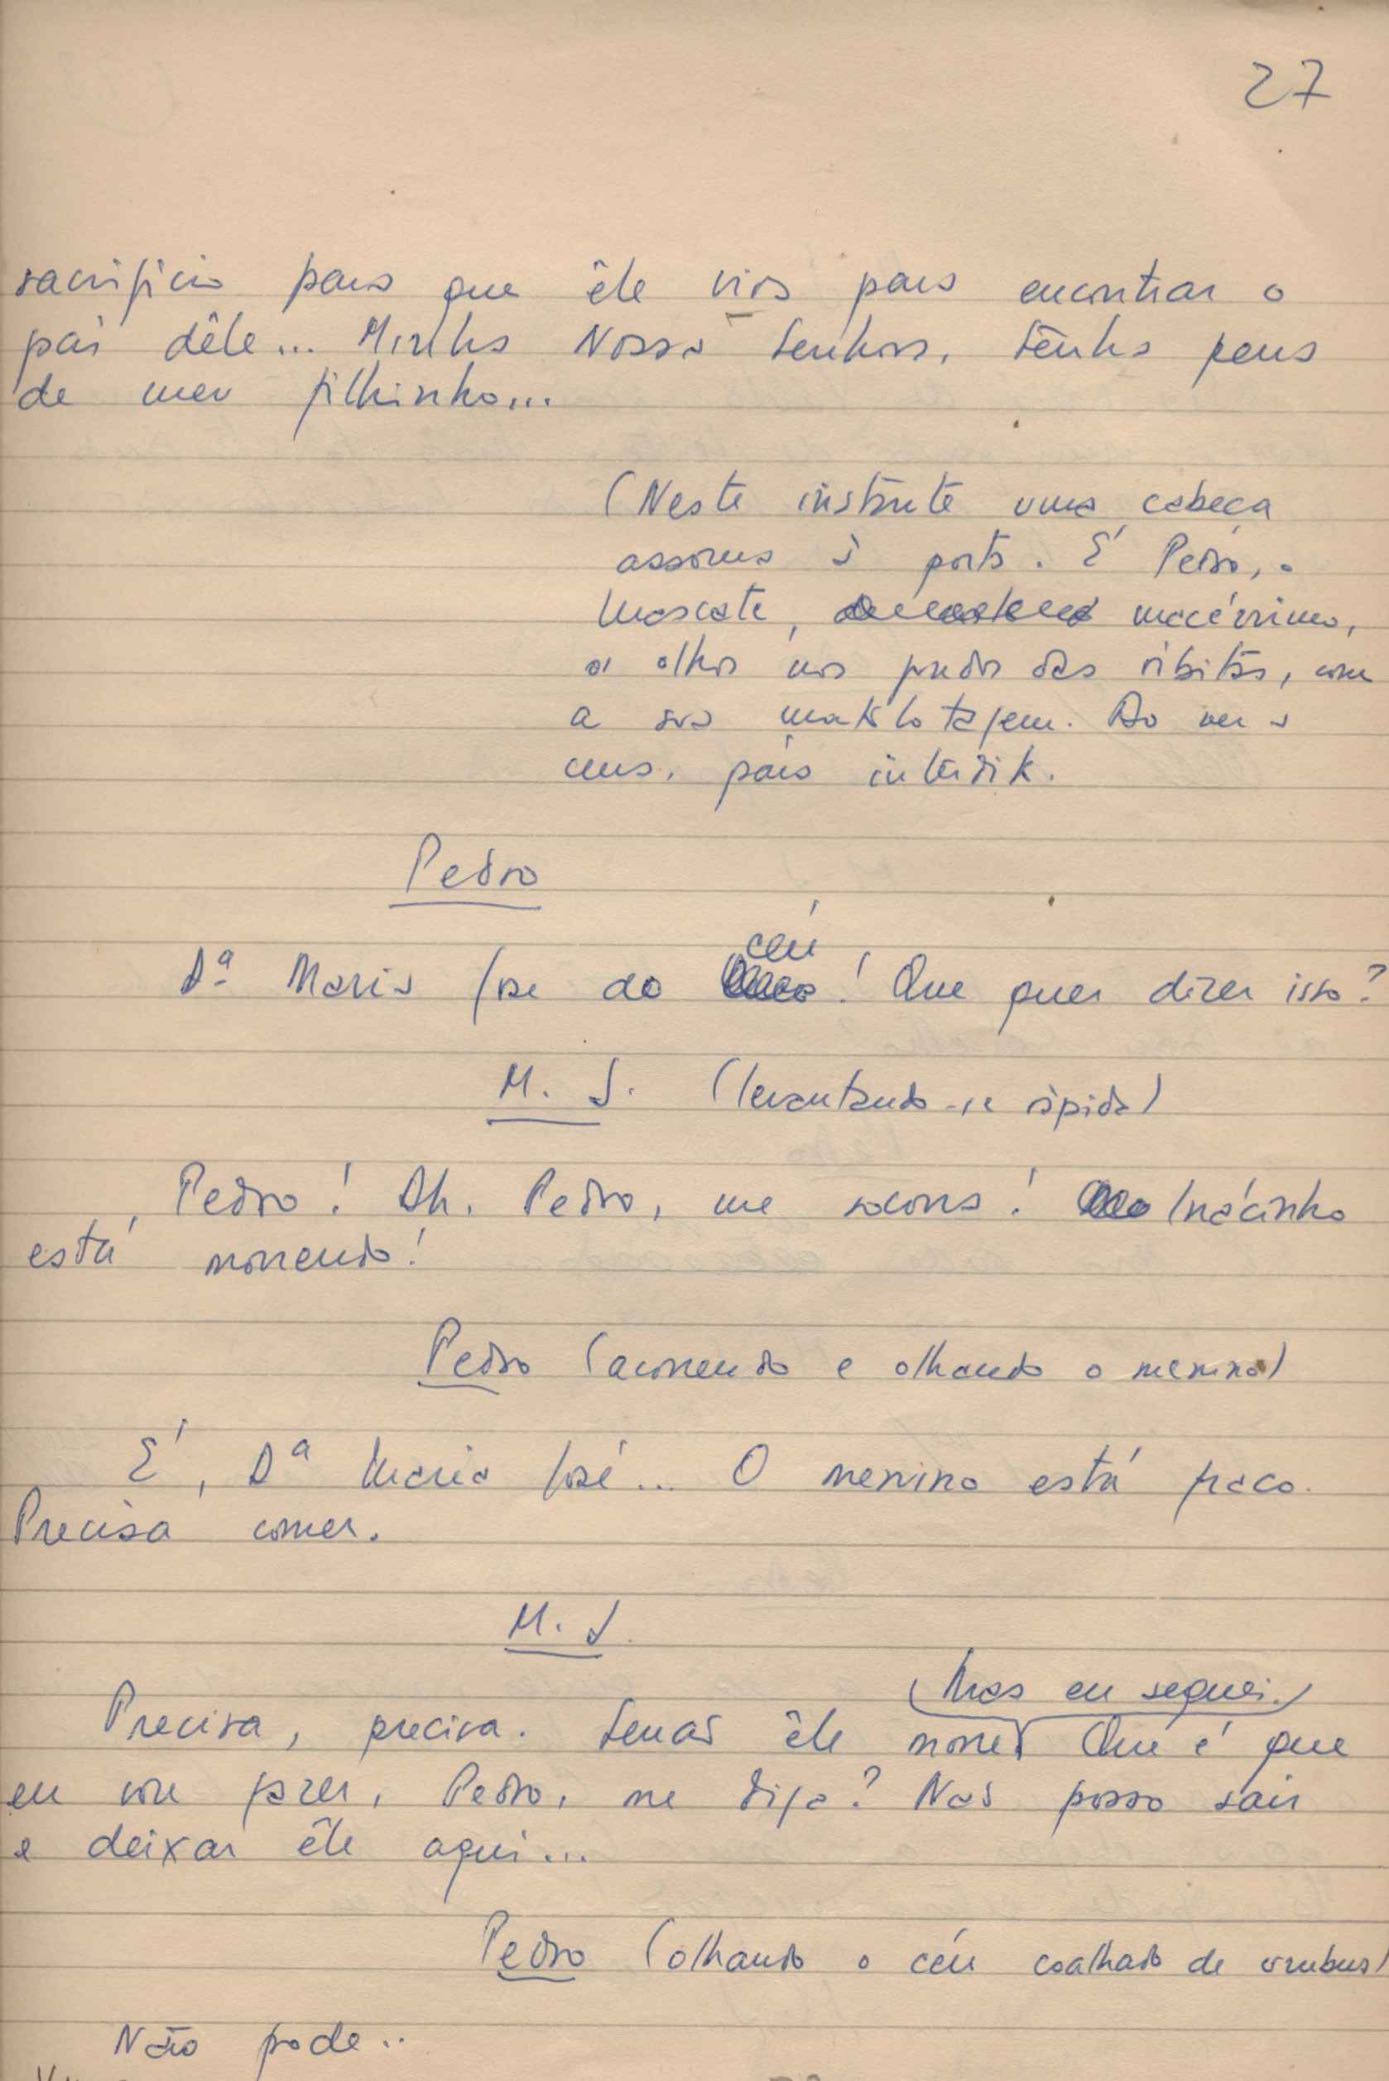 27
sacrifício para que êle viva para encontrar o
pai dêle... Minha Nossa Senhora, tenha pena
de meu filhinho...
(Neste instante uma cabeça
assoma à porta. É Pedro, o
Mascate, macérrimo,
os olhos no fundo das órbitas, com
a sua matalotagem. Ao ver a
cena, pára interdito.
Pedro
Dª Maria José do céu! Que quer dizer isso?
M. J. (levantando-se rápida)
Pedro! Ah, Pedro, me socorra! Inácinho
está morrendo!
Pedro (acorrendo e olhando o menino)
É, Dª Maria José... O menino está fraco.
Precisa comer.
M. J.
(Mas eu seguei.)
Precisa, precisa. Senão êle morre. Que é que
eu vou fazer, Pedro, me diga? Não posso sair
e deixar êle aqui...
Pedro (olhando o céu coalhado de urubus)
Não pode..